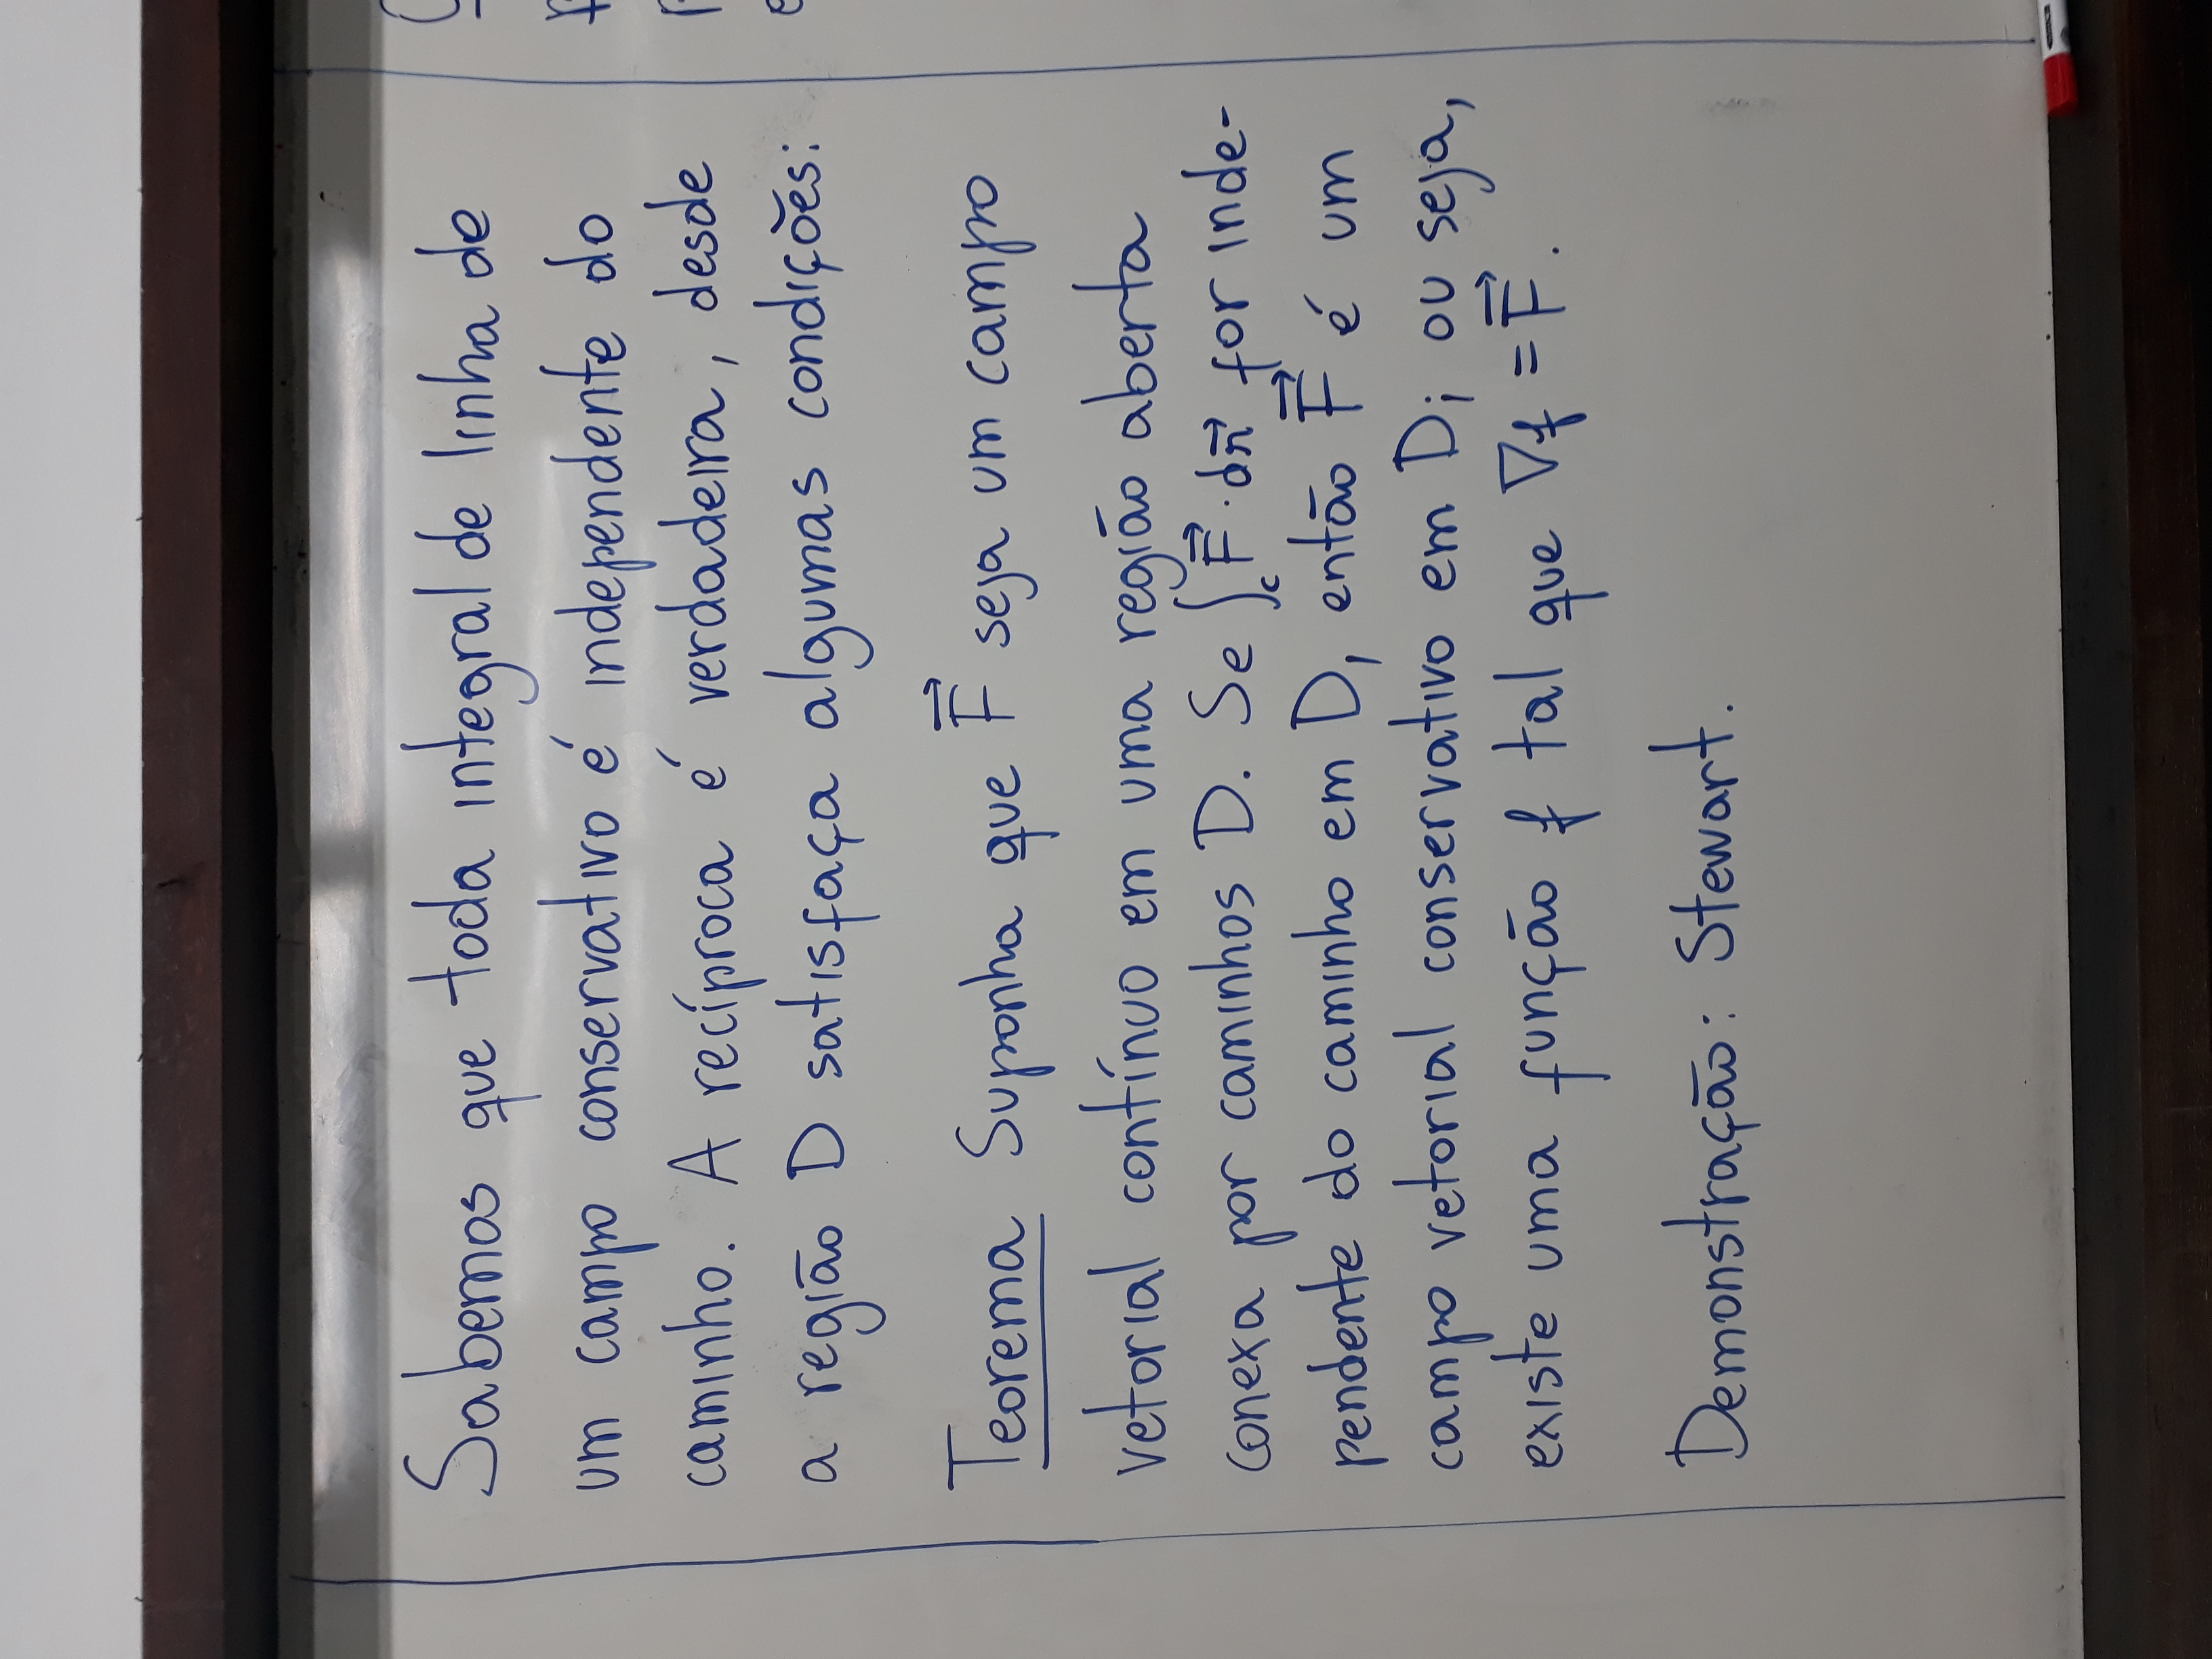 Sabemos que toda integral de linha de
um campo conservativo é independente do
caminho. A recíproca é verdadeira, desde
a região D satisfaça algumas condições:
Teorema Suponha que F⃗ seja um campo
vetorial contínuo em uma região aberta
conexa por caminhos D. Se ∫_C F⃗ · dr⃗ for inde-
pendente do caminho em D, então F⃗ é um
campo vetorial conservativo em D; ou seja,
existe uma função f tal que ∇f = F⃗.
Demonstração: Stewart.